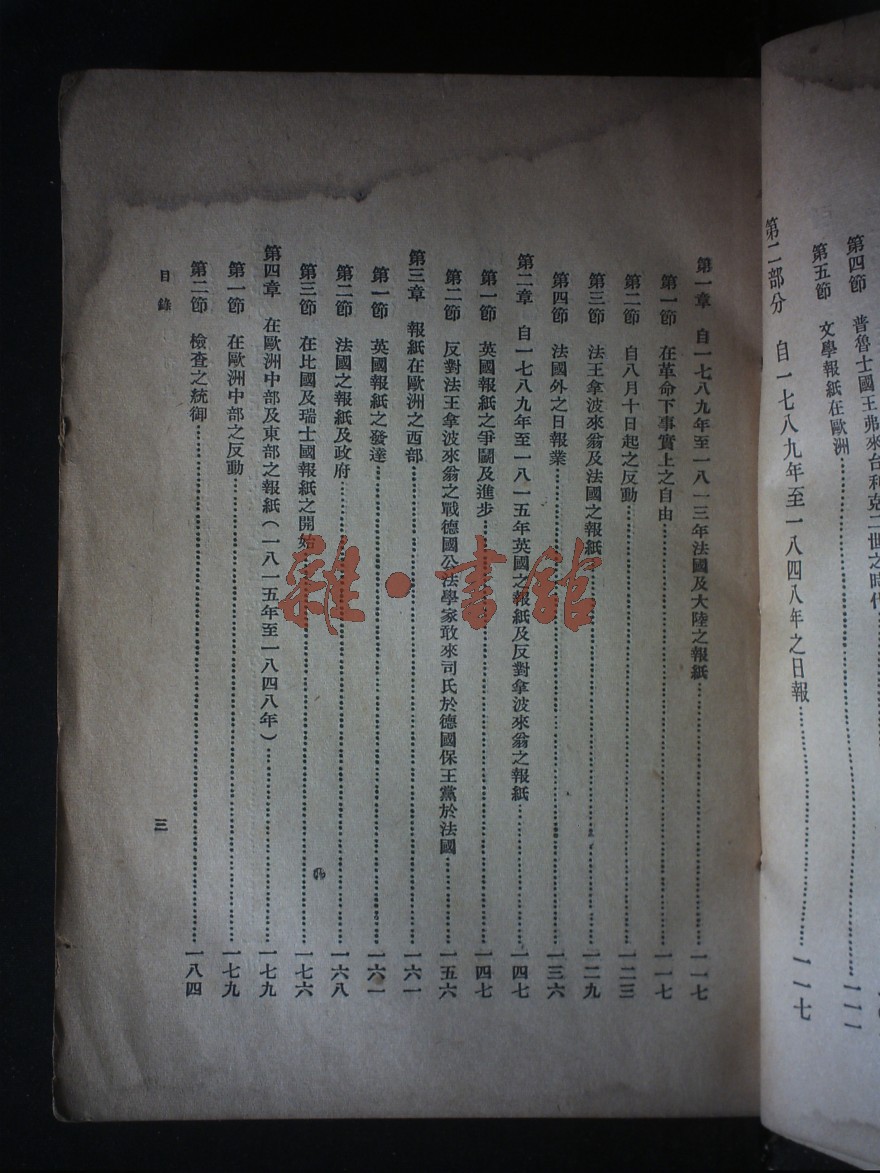 第四節　普魯士國王弗來台利克二世之時代……一一一
第五節　文學報紙在歐洲……一一一
第二部分　自一七八九年至一八四八年之日報……一一七
第一章　自一七八九年至一八一三年法國及大陸之報紙……一一七
第一節　在革命下事實上之自由……一一七
第二節　自八月十日起之反動……一二三
第三節　法王拿波來翁及法國之報紙……一二九
第四節　法國外之日報業……一三六
第二章　自一七八九年至一八一五年英國之報紙及反對拿波來翁之報紙……一四七
第一節　英國報紙之爭鬪及進步……一四七
第二節　反對法王拿波來翁之戰德國公法學家敢來司氏於德國保王黨於法國……一五六
第三章　報紙在歐洲之西部……一六一
第一節　英國報紙之發達……一六一
第二節　法國之報紙及政府……一六八
第三節　在比國及瑞士國報紙之開始……一七六
第四章　在歐洲中部及東部之報紙（一八一五年至一八四八年）……一七九
第一節　在歐洲中部之反動……一七九
第二節　檢查之統御……一八四
目錄
三
雜·書館